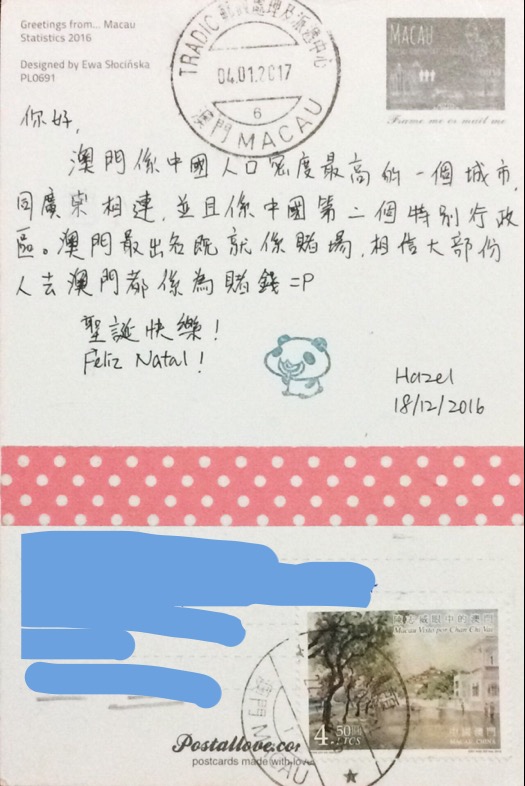 Greetings from... Macau
Statistics 2016
Designed by Ewa Słocińska
PL0691
TRADIC 郵件處理及派遞中心
04.01.2017
6
澳門 MACAU
MACAU
Frame me or mail me
你好,
澳門係中國人口密度最高的一個城市,
同廣東相連,並且係中國第二個特別行政
區。澳門最出名既就係賭場,相信大部份
人去澳門都係為賭錢=P
聖誕快樂!
Feliz Natal!
Hazel
18/12/2016
陳志威眼中的澳門
Macau Visto por Chan Chi Vai
4.50 圓 PTCS
中國澳門
MACAU, CHINA
澳門
MACAU
Postallove.com
postcards made with love